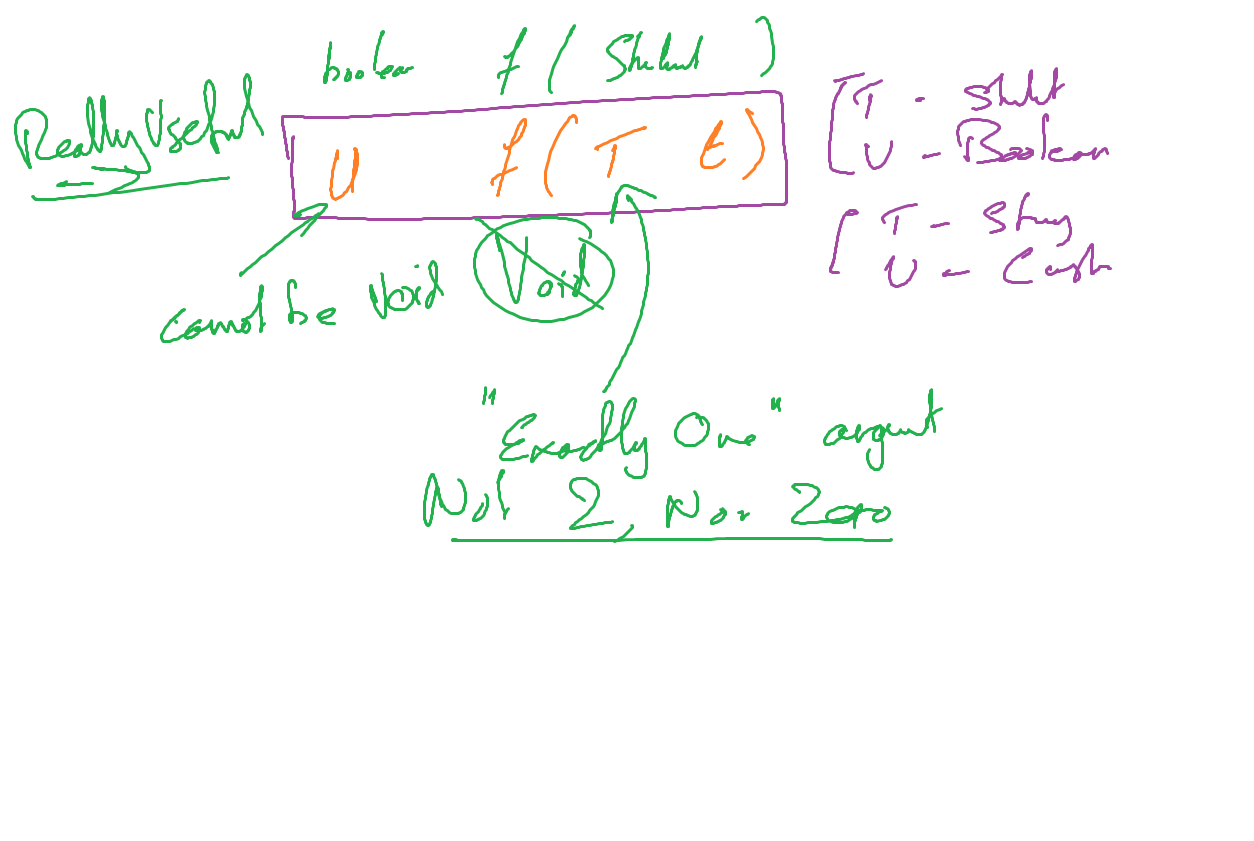 boolean f ( Student )
ReallyUseful
U f ( T t )
T - Student
U - Boolean
T - String
U - Cash
cannot be Void
Void
"Exactly One" argument
Not 2, Nor Zero